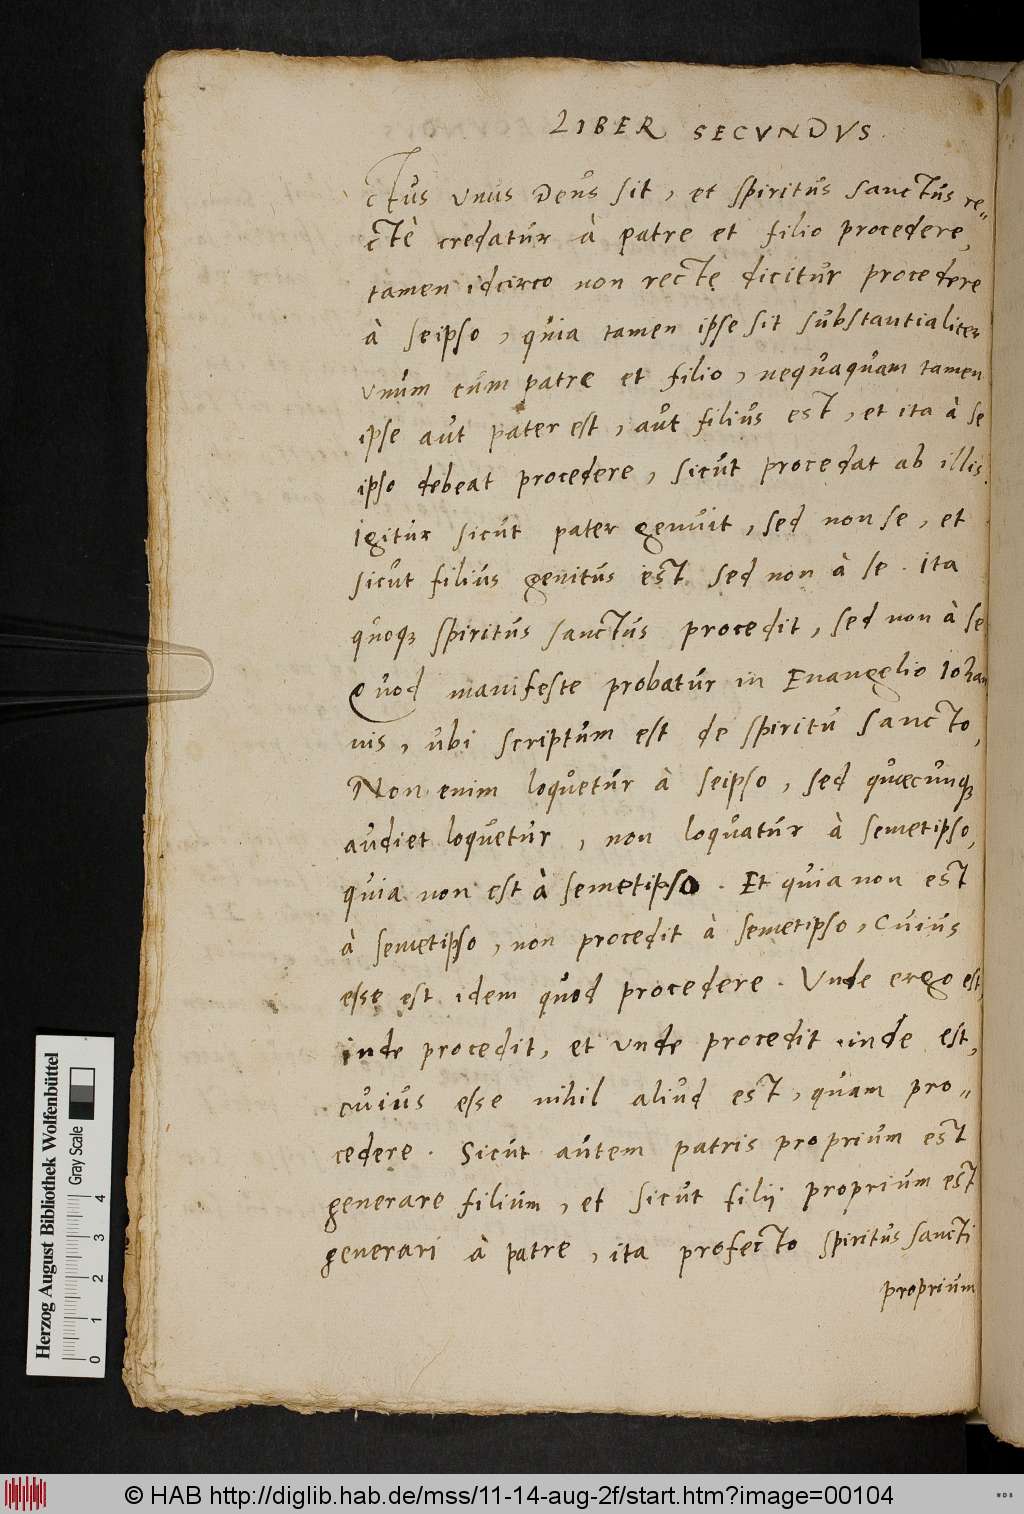 LIBER SECVNDVS.
ctus vnus Deus sit, et spiritus sanctus re„
ctè credatur à patre et filio procedere,
tamen idcirco non rectę dicitur procedere
à seipso, quia tamen ipse sit substantialiter
vnum cum patre et filio, nequaquam tamen
ipse aut pater est, aut filius est, et ita à se
ipso debeat procedere, sicut procedat ab illis.
igitur sicut pater genuit, sed non se, et
sicut filius genitus est sed non à se. ita
quoqꝫ spiritus sanctus procedit, sed non à se
Quod manifeste probatur in Euangelio Iohan
nis, ubi scriptum est de spiritu sancto,
Non enim loquetur à seipso, sed quæcunqꝫ
audiet loquetur, non loquatur à semetipso,
quia non est à semetipso. Et quia non est
à semetipso, non procedit à semetipso, Cuius
esse est idem quod procedere. Vnde ergo est,
inde procedit, et vnde procedit inde est,
cuius esse nihil aliud est, quam pro„
cedere. Sicut autem patris proprium est
generare filium, et sicut filij proprium est
generari à patre, ita profecto spiritus sancti
proprium
Herzog August Bibliothek Wolfenbüttel
Gray Scale
0 1 2 3 4
© HAB http://diglib.hab.de/mss/11-14-aug-2f/start.htm?image=00104